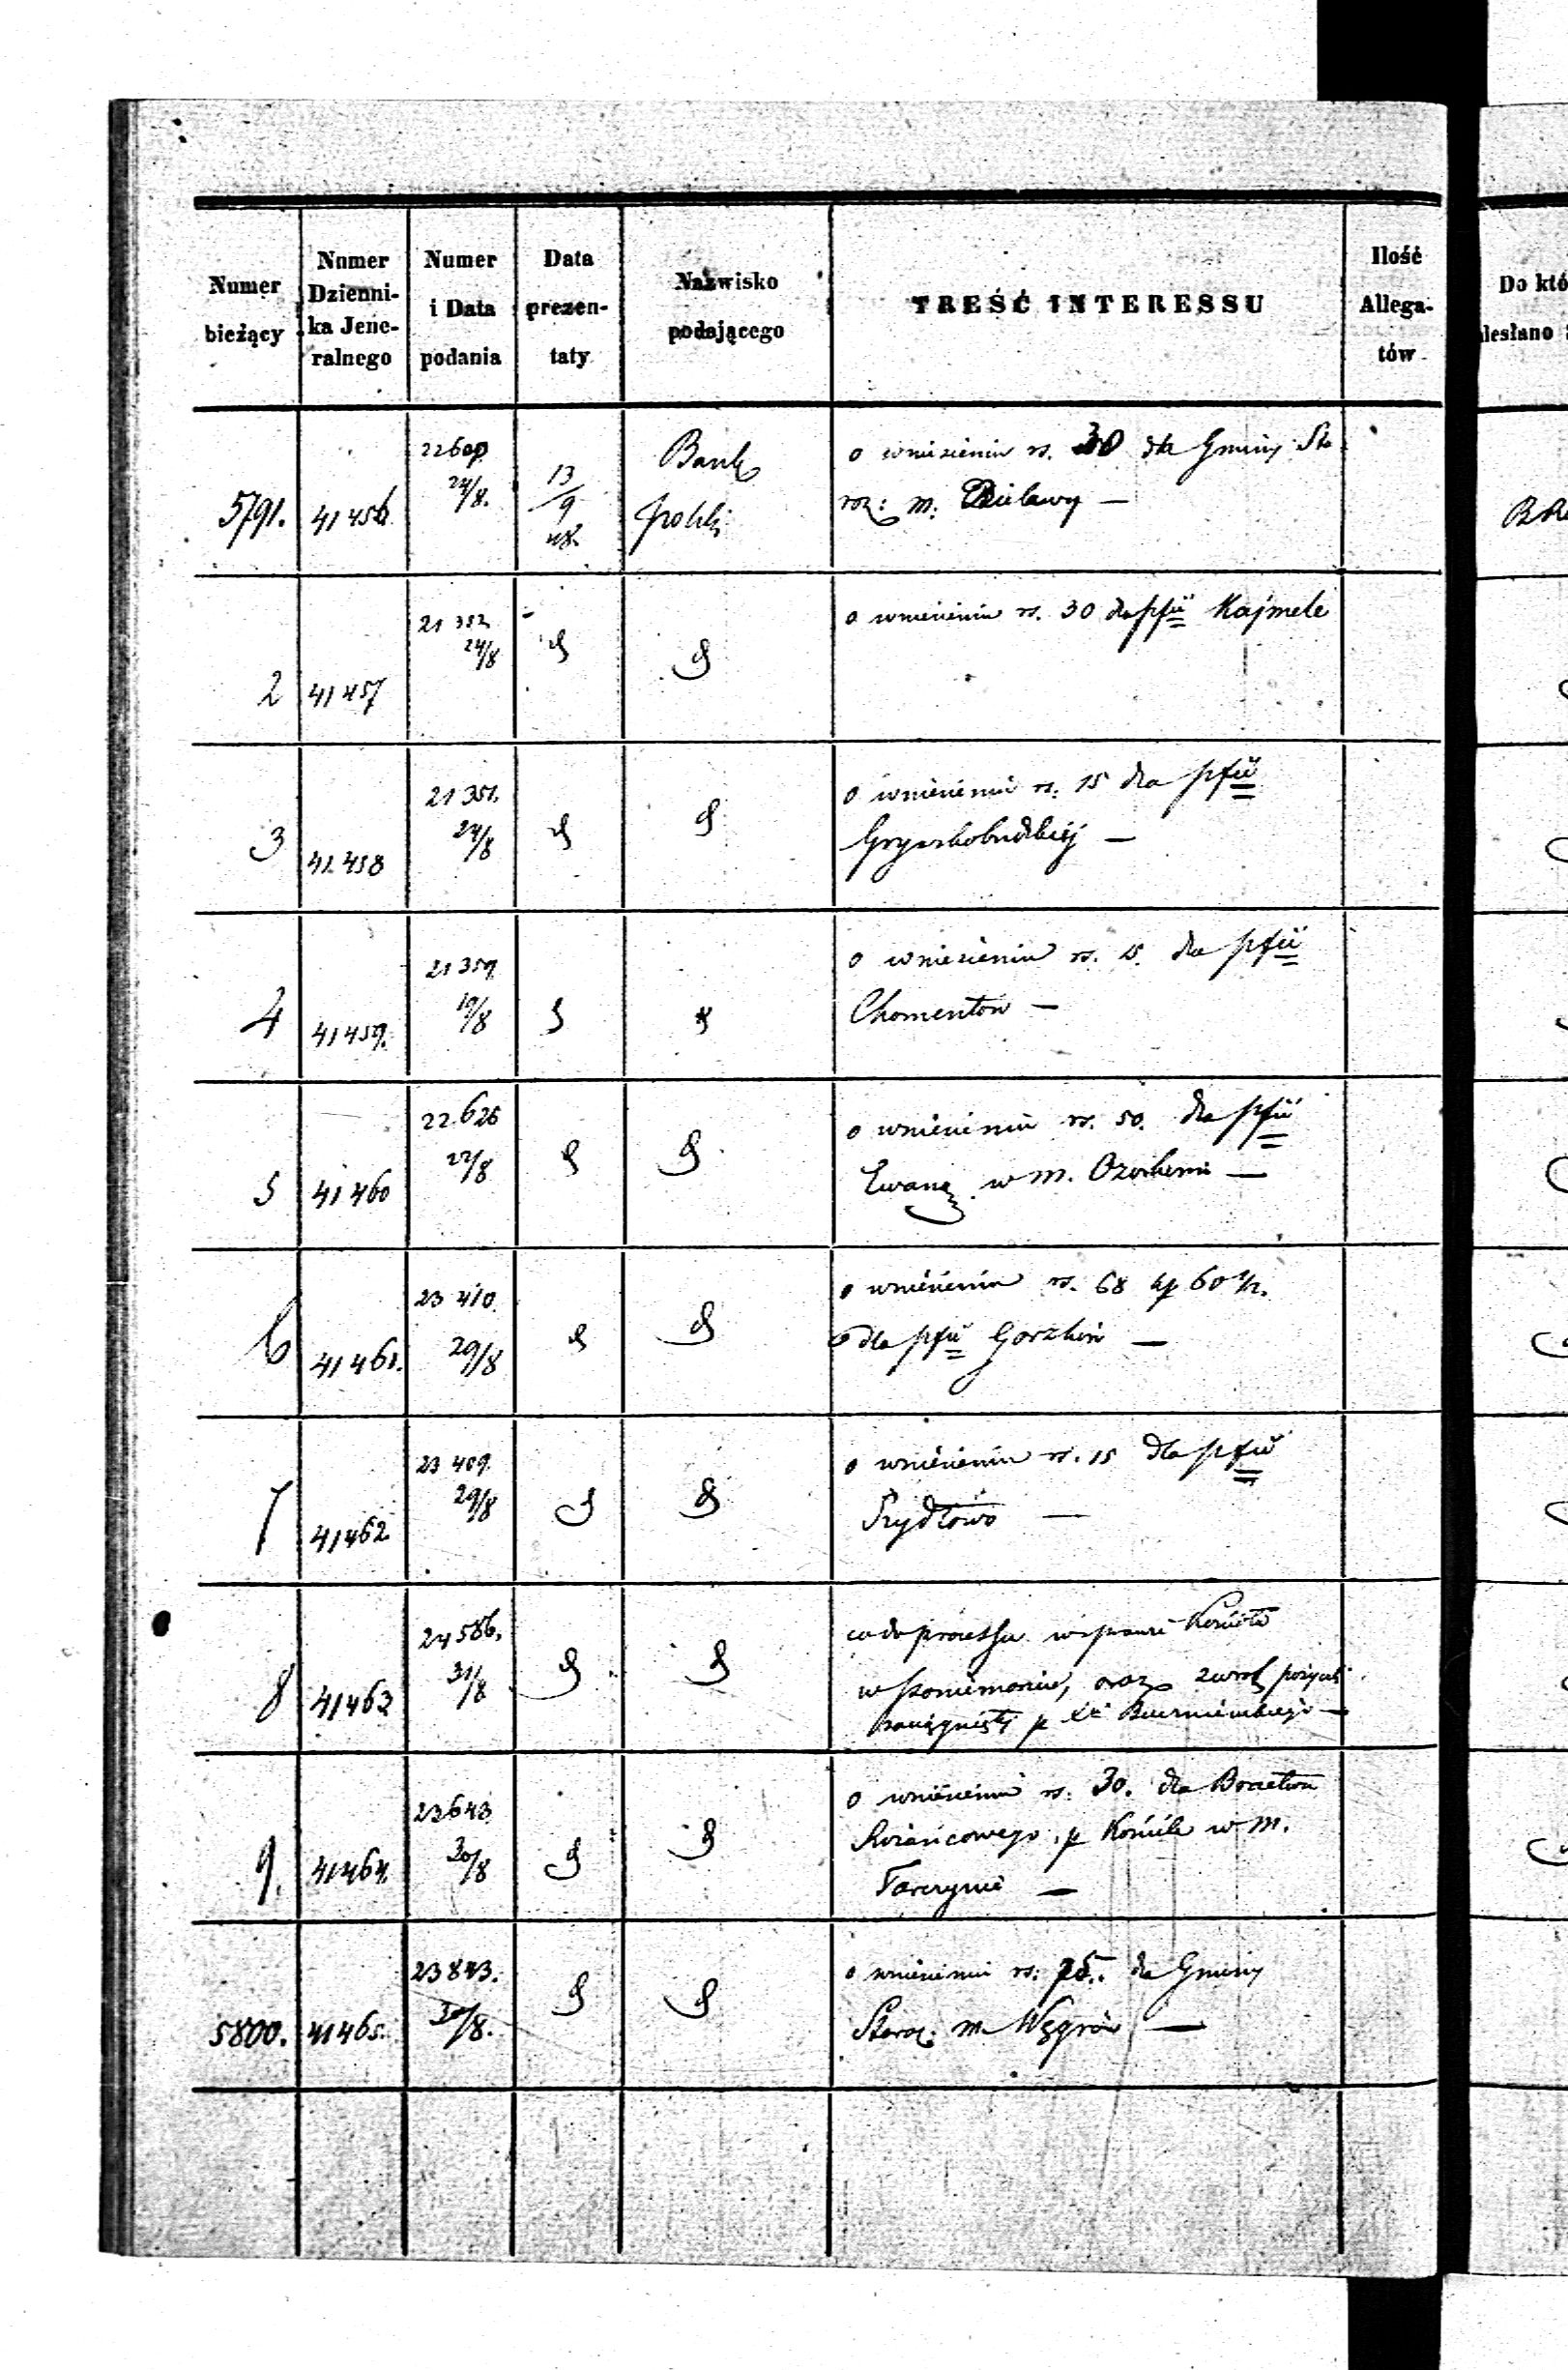 Numer bieżący | Numer Dzienni-ka Jene-ralnego | Numer i Data podania | Data prezen-taty | Nazwisko podającego | TREŚĆ INTERESSU | Ilość Allega-tów
Do któ
desłano
5791. | 41456 | 22609 24/8. | 13/9 48 | Bank Polski | o wniesieniu rs. 30 dla Gminy Sta
roz: m: Bielawy —
2 | 41457 | 21352 24/8 | o wniesieniu rs. 30 dla pfii Kajmele
3 | 41458 | 21351. 24/8 | o wniesieniu rs: 15 dla pfii
Gryszkobudzkiej —
4 | 41459. | 21359. 19/8 | o wniesieniu rs. 15. dla pfii
Chomentów —
5 | 41460 | 22626 22/8 | o wniesieniu rs. 50. dla pfii
Ewang w m. Ozorkowie —
6 | 41461. | 23410. 29/8 | o wniesieniu rs. 68 kp 60 1/2.
dla pfii Gorzków —
7 | 41462 | 23409. 29/8 | o wniesieniu rs. 15 dla pfii
Szydłowo —
8 | 41463 | 24586. 31/8 | co do processu w sprawie Kościoła
w Poniemoniu, oraz zwrot pożyczki
zaciągniętej p Xa
9. | 41464. | 23643. 30/8 | o wniesieniu rs: 30. dla Bractwa
Różańcowego p Kościele w m.
Tarczynie —
5800. | 41465. | 23843. 30/8. | o wniesieniu rs: 75. dla Gminy
Staroz: m. Węgrów —